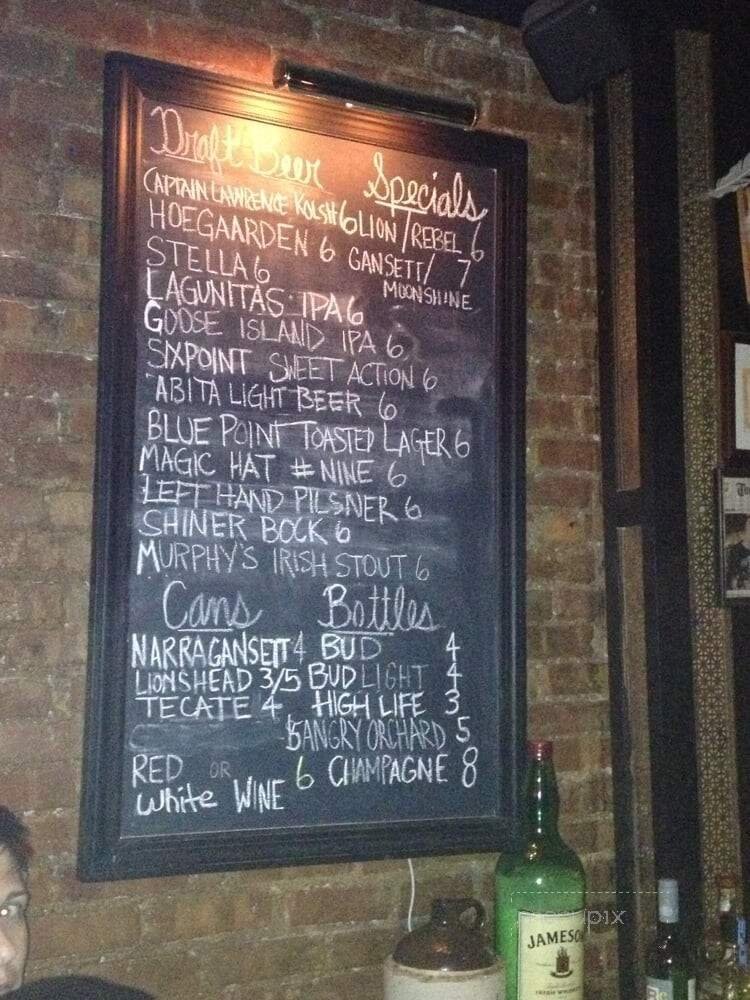 Draft Beer Specials
CAPTAIN LAWRENCE KOLSH 6 LION/REBEL 6
HOEGAARDEN 6 GANSETT/ 7
STELLA 6 MOONSHINE
LAGUNITAS IPA 6
GOOSE ISLAND IPA 6
SIXPOINT SWEET ACTION 6
ABITA LIGHT BEER 6
BLUE POINT TOASTED LAGER 6
MAGIC HAT # NINE 6
LEFT HAND PILSNER 6
SHINER BOCK 6
MURPHY'S IRISH STOUT 6
Cans Bottles
NARRAGANSETT 4 BUD 4
LIONSHEAD 3/5 BUD LIGHT 4
TECATE 4 HIGH LIFE 3
ANGRY ORCHARD 5
RED OR 6 CHAMPAGNE 8
White WINE
JAMESO
IRISH WHISKEY